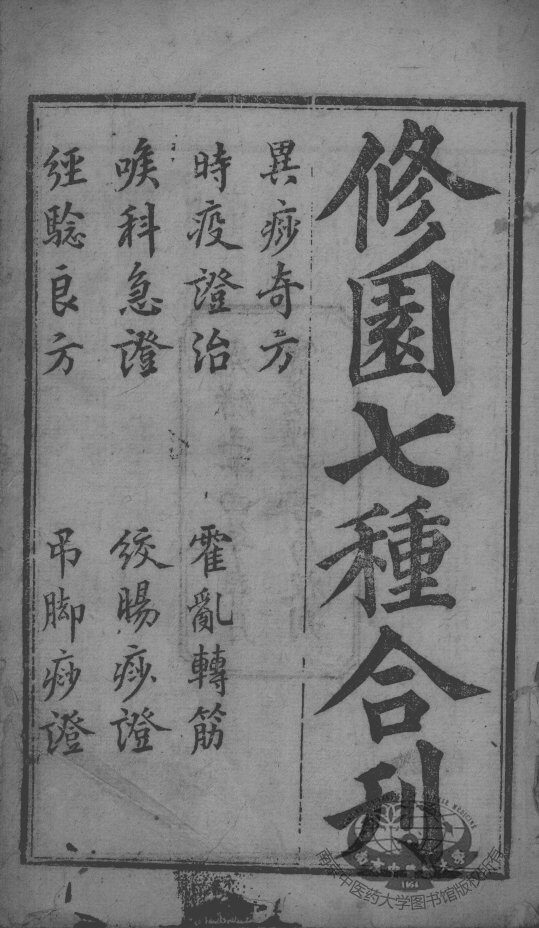 修園七種合刊
異痧奇方
時疫證治
霍亂轉筋
喉科急證
絞腸痧證
經驗良方
吊脚痧證
南京中医药大学图书馆版权所有
1954